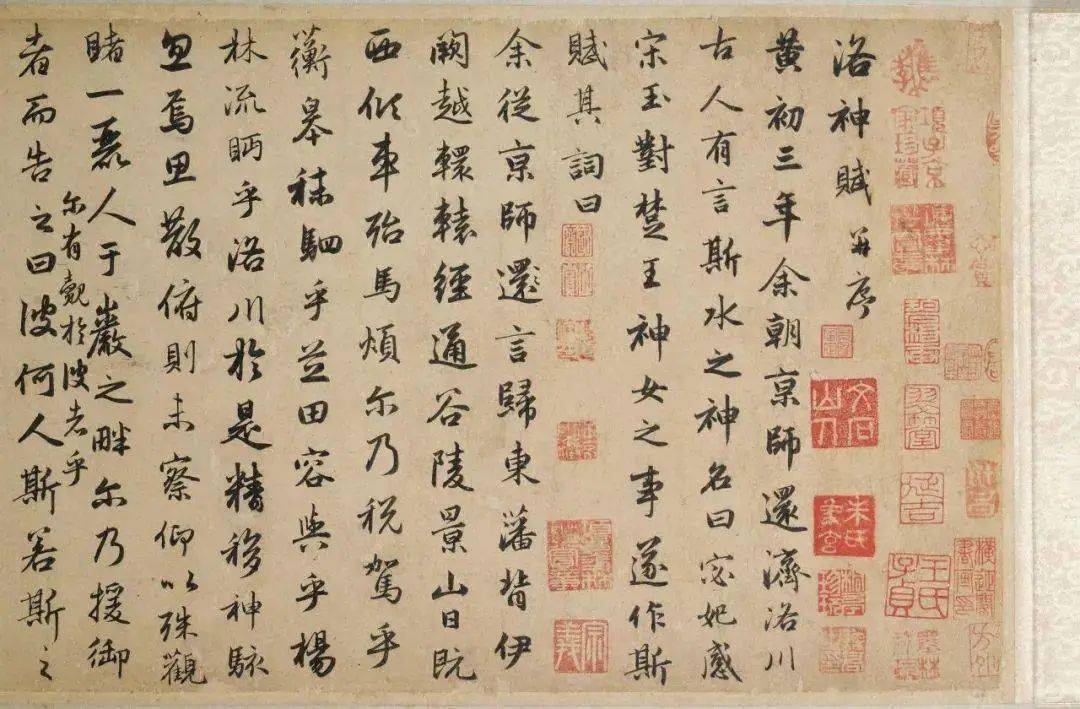 洛神賦并序
黄初三年余朝京師還濟洛川
古人有言斯水之神名曰宓妃感
宋玉對楚王神女之事遂作斯
賦其詞曰
余從京師還言歸東藩背伊
闕越轘轅經通谷陵景山日既
西傾車殆馬煩尔乃税駕乎
蘅皋秣駟乎芝田容與乎楊
林流眄乎洛川於是精移神駭
忽焉思散俯則未察仰以殊觀
睹一麗人于巖之畔尔乃援御
尔有覿於彼者乎
者而告之曰彼何人斯若斯之
項子京家珍藏